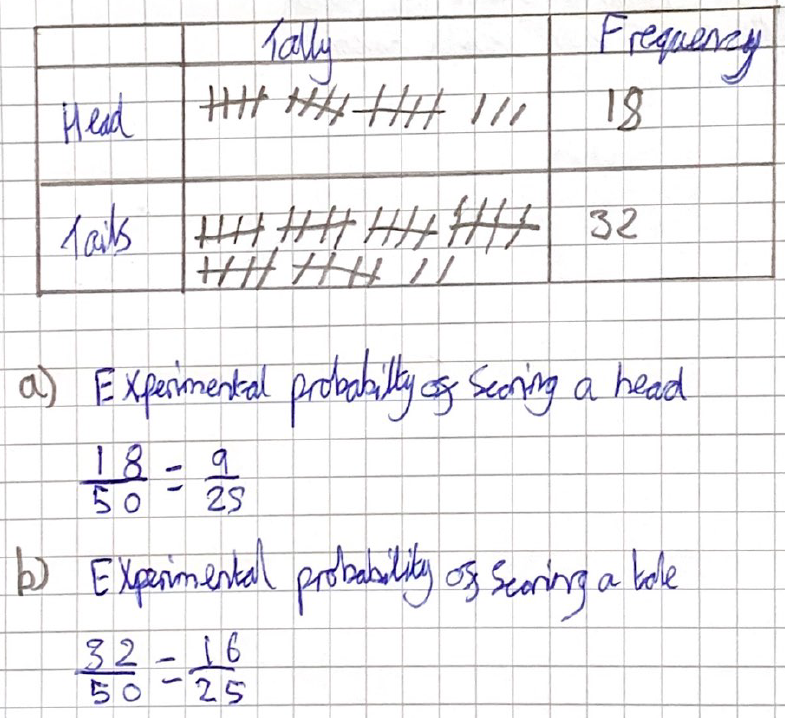 Tally Frequency
Head 18
Tails 32
a) Experimental probabilty of Scoring a head
18/50 = 9/25
b) Experimental probability of Scoring a tale
32/50 = 16/25